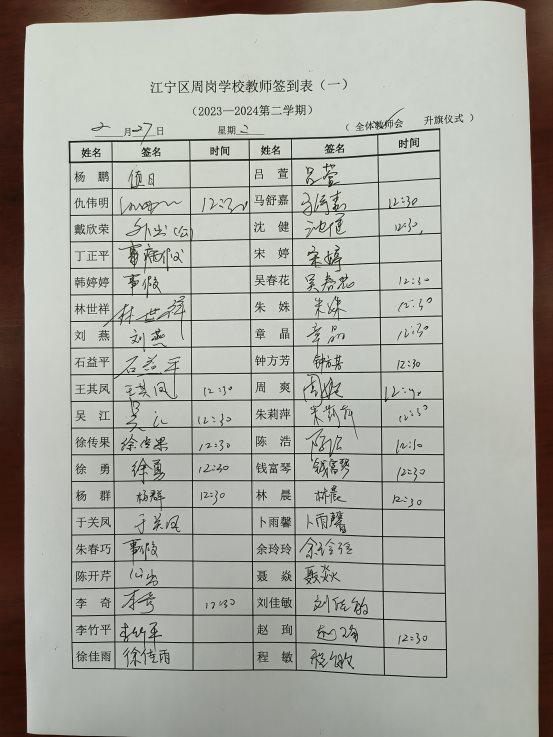 江宁区周岗学校教师签到表（一）
（2023—2024第二学期）
2月27日 星期二 （全体教师会 升旗仪式）
姓名 签名 时间 姓名 签名 时间
杨 鹏 值日 吕 萱 吕萱
仇伟明 马舒嘉 马舒嘉 12:30
戴欣荣 外出(公) 沈 健 沈健 12:30
丁正平 事病假 宋 婷 宋婷
韩婷婷 事假 吴春花 吴春花 12:30
林世祥 林世祥 朱 姝 朱姝 12:30
刘 燕 刘燕 章 晶 章晶 12:30
石益平 石益平 钟方芳 钟方芳 12:30
王其凤 王其凤 12:30 周 爽 周爽
吴 江 吴江 12:30 朱莉萍 朱莉萍 12:30
徐传果 徐传果 12:30 陈 浩 陈浩 12:30
徐 勇 徐勇 12:30 钱富琴 钱富琴 12:30
杨 群 杨群 12:30 林 晨 林晨 12:30
于关凤 于关凤 卜雨馨 卜雨馨
朱春巧 事假 余玲玲 余玲玲
陈开芹 聂 焱 聂焱
李 奇 李奇 12:30 刘佳敏 刘佳敏
李竹平 李竹平 赵 珣 赵珣 12:30
徐佳雨 徐佳雨 程 敏 程敏